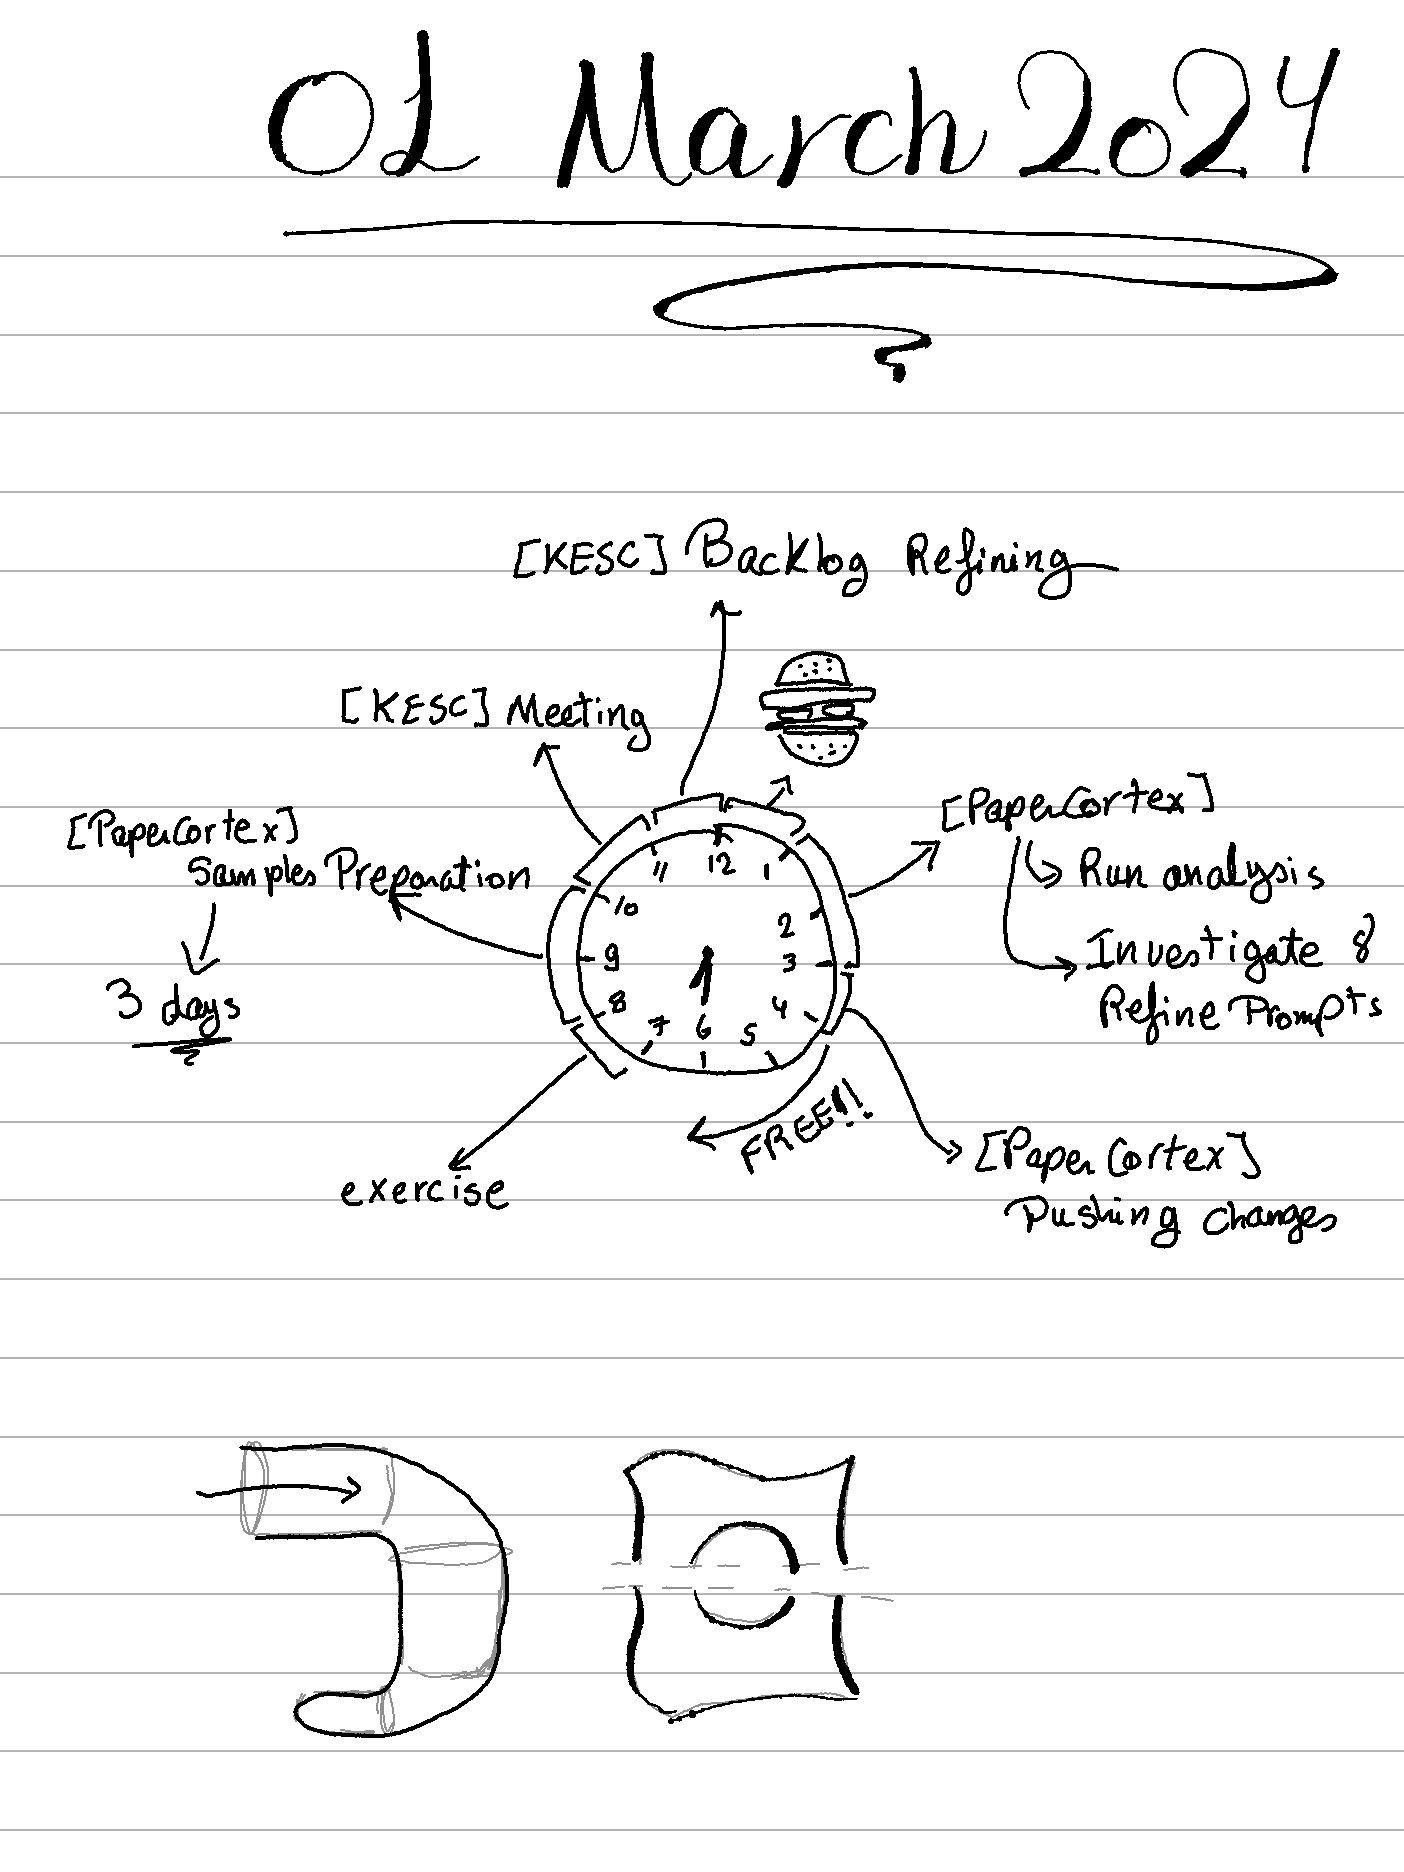 01 March 2024
[KESC] Backlog Refining
[KESC] Meeting
[PaperCortex]
Samples Preparation
3 days
[PaperCortex]
Run analysis
Investigate &
Refine Prompts
12
1
2
3
4
5
6
7
8
9
10
11
FREE!!
exercise
[PaperCortex]
Pushing changes